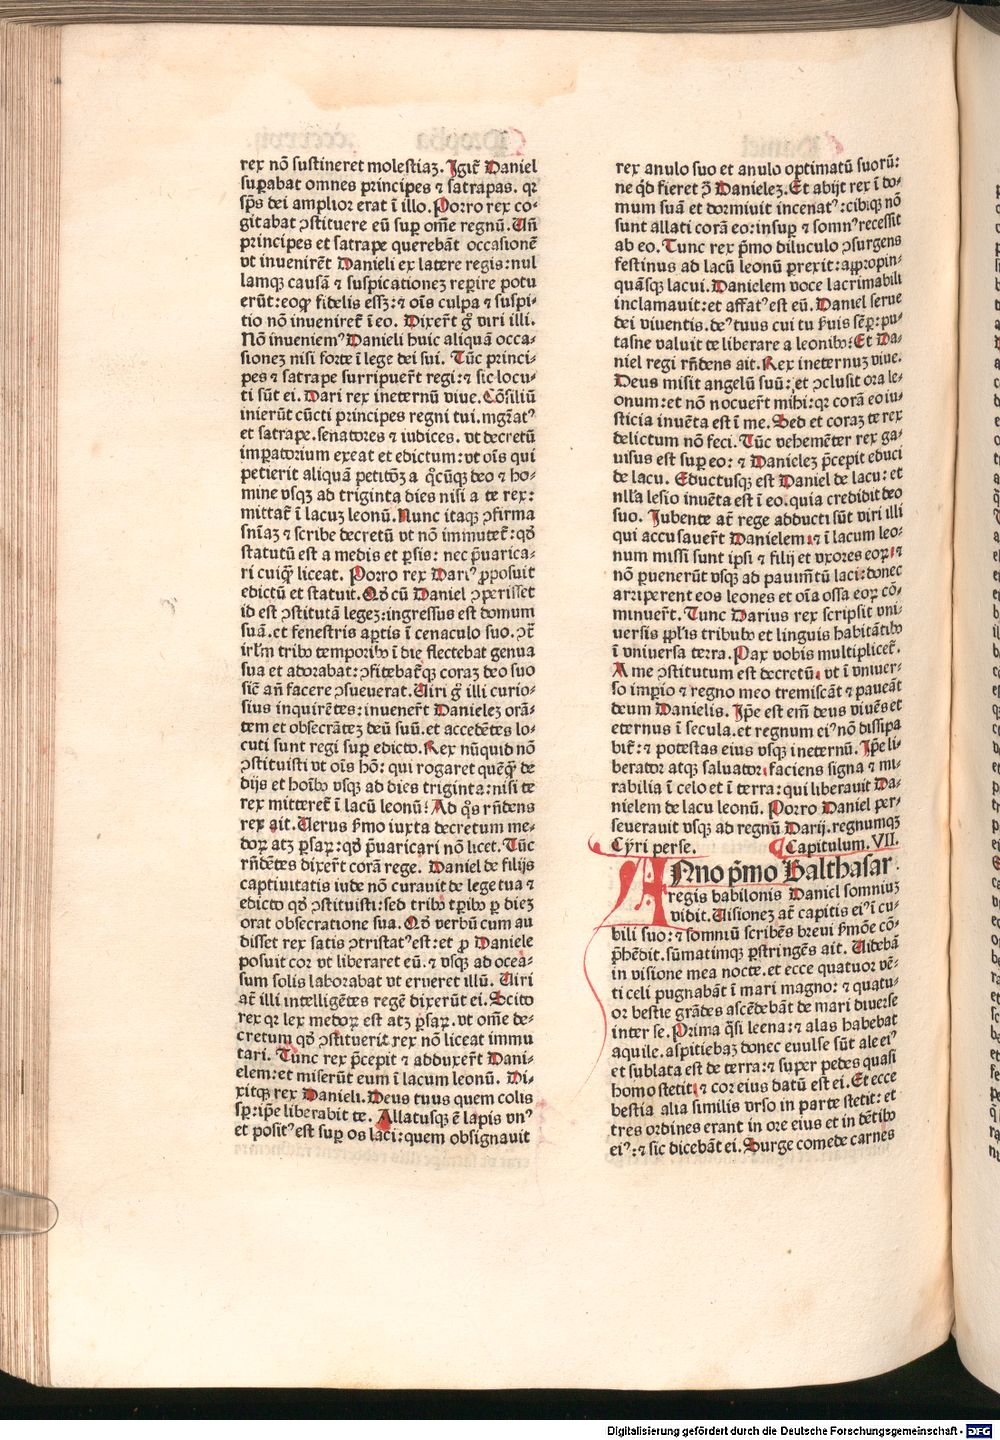 rex nõ sustineret molestiaꝫ. Igit᷑ Daniel
supabat omnes principes ⁊ satrapas. qꝛ
spũs dei amplior erat ĩ illo. Porro rex co-
gitabat ꝯstituere eũ suꝑ om̃e regnũ. Uñ
principes et satrape querebãt occasionẽ
vt inuenirẽt Danieli ex latere regis: nul
lamqꝫ causã ⁊ suspicationeꝫ reꝑire potu
erũt: eoqꝫ fidelis essꝫ: ⁊ oĩs culpa ⁊ suspi-
tio nõ inueniret᷑ ĩ eo. Dixerũt gͦ viri illi.
Nõ inueniemꝰ Danieli huic aliquã occa-
sioneꝫ nisi forte ĩ lege dei sui. Tũc princi-
pes ⁊ satrape surripuer̃t regi: ⁊ sic locu-
ti sũt ei. Dari rex ineternũ viue. Cõsiliũ
inierũt cũcti principes regni tui. mgr̃atꝰ
et satrape. senatores ⁊ iudices. vt decretũ
imꝑatorium exeat et edictum: vt oĩs qui
petierit aliquã petitõꝫ a qͦcũqꝫ deo ⁊ ho-
mine vsqꝫ ad triginta dies nisi a te rex:
mittat᷑ ĩ lacuꝫ leonũ. Nunc itaqꝫ ꝯfirma
sniãꝫ ⁊ scribe decretũ vt nõ immutet᷑: qd̾
statutũ est a medis et ꝑsis: nec p̃uarica-
ri cuiqͣꝫ liceat. Porro rex Dariꝰ ꝓposuit
edictũ et statuit. Qd̾ cũ Daniel ꝯperisset
id est ꝯstitutã legeꝫ: ingressus est domum
suã. et fenestris aꝑtis ĩ cenaculo suo. ꝯt᷑
irl̃m tribꝰ temporibꝰ ĩ die flectebat genua
sua et adorabat: ꝯfitebat᷑qꝫ coraꝫ deo suo
sic̃ añ facere ꝯsueuerat. Uiri gͦ illi curio-
sius inquirẽtes: inuener̃t Danieleꝫ orã-
tem et obsecrãteꝫ deũ suũ. et accedẽtes lo-
cuti sunt regi suꝑ edicto. Rex nũquid nõ
ꝯstituisti vt oĩs hõ: qui rogaret quẽqͣꝫ de
dijs et hoĩbꝰ vsqꝫ ad dies triginta: nisi te
rex mitteret᷑ ĩ lacũ leonũ? Ad qͦs rñdens
rex ait. Uerus ẜmo iuxta decretum me-
doꝝ atqꝫ ꝑsaꝝ: qd̾ p̃uaricari nõ licet. Tũc
rñdẽtes dixer̃t corã rege. Daniel de filijs
captiuitatis iude nõ curauit de lege tua ⁊
edicto qd̾ ꝯstituisti: sed tribꝰ tꝑibꝰ ꝑ dieꝫ
orat obsecratione sua. Qd̾ verbũ cum au
disset rex satis ꝯtristatꝰ est: et ꝓ Daniele
posuit cor vt liberaret eũ. ⁊ vsqꝫ ad occa-
sum solis laborabat vt erueret illũ. Uiri
at̃ illi intelligẽtes regẽ dixerũt ei. Scito
rex qꝛ lex medoꝝ est atqꝫ ꝑsaꝝ. vt om̃e de-
cretum qd̾ ꝯstituerit rex nõ liceat immu
tari. Tunc rex p̃cepit ⁊ adduxer̃t Dani-
elem: et miserũt eum ĩ lacum leonũ. Di-
xitqꝫ rex Danieli. Deus tuus quem colis
sꝑ: ip̃e liberabit te. Allatusqꝫ ẽ lapis vnꝰ
et positꝰ est suꝑ os laci: quem obsignauit
rex anulo suo et anulo optimatũ suorũ:
ne qd̾ fieret ꝯ̃ Danieleꝫ. Et abijt rex ĩ do-
mum suã et dormiuit incenatꝰ: cibiqꝫ nõ
sunt allati corã eo: insuꝑ ⁊ somnꝰ recessit
ab eo. Tunc rex p̃mo diluculo ꝯsurgens
festinus ad lacũ leonũ ꝑrexit: aꝓpin-
quãsqꝫ lacui. Danielem voce lacrimabili
inclamauit: et affatꝰ est eũ. Daniel serue
dei viuentis. deꝰ tuus cui tu ẜuis sẽꝑ: pu-
tasne valuit te liberare a leonibꝰ? Et Da-
niel regi rñdens ait. Rex ineternuꝫ viue.
Deus misit angelũ suũ: et ꝯclusit ora le-
onum: et nõ nocuer̃t mihi: qꝛ corã eo iu-
sticia inuẽta est ĩ me. Sed et coraꝫ te rex
delictum nõ feci. Tũc vehemẽter rex ga-
uisus est suꝑ eo: ⁊ Danieleꝫ p̃cepit educi
de lacu. Eductusqꝫ est Daniel de lacu: et
nll̃a lesio inuẽta est ĩ eo. quia credidit deo
suo. Jubente at̃ rege adducti sũt viri illi
qui accusauer̃t Danielem: ⁊ ĩ lacum leo-
num missi sunt ipsi ⁊ filij et vxores eoꝝ: ⁊
nõ ꝑuenerũt vsqꝫ ad pauim̃tũ laci: donec
arriperent eos leones et oĩa ossa eoꝝ cõ-
minuer̃t. Tunc Darius rex scripsit vni-
uersis ppl̃is tribubꝰ et linguis habitãtibꝰ
ĩ vniuersa terra. Pax vobis multiplicet᷑.
A me ꝯstitutum est decretũ. vt ĩ vniuer-
so imꝑio ⁊ regno meo tremiscãt ⁊ paueãt
deum Danielis. Ip̃e est em̃ deus viuẽs et
eternus ĩ secula. et regnum eiꝰ nõ dissipa
bit᷑: ⁊ potestas eius vsqꝫ ineternũ. Ip̃e li-
berator atqꝫ saluator: faciens signa ⁊ mi-
rabilia ĩ celo et ĩ terra: qui liberauit Da-
nielem de lacu leonũ. Porro Daniel per-
seuerauit vsqꝫ ad regnũ Darij. regnumqꝫ
Cyri perse. Capitulum. VII.
ANno p̃mo Balthasar
regis babilonis Daniel somniuꝫ
vidit. Uisioneꝫ at̃ capitis eiꝰ ĩ cu-
bili suo: ⁊ somniũ scribẽs breui ẜmõe cõ-
p̃hẽdit. sũmatimqꝫ ꝑstringẽs ait. Uidebã
in visione mea nocte. et ecce quatuor vẽ-
ti celi pugnabãt ĩ mari magno: ⁊ quatu-
or bestie grãdes ascẽdebãt de mari diuerse
inter se. Prima qͣsi leena: ⁊ alas habebat
aquile. aspitiebaꝫ donec euulse sũt ale eiꝰ
et sublata est de terra: ⁊ super pedes quasi
homo stetit: ⁊ cor eius datũ est ei. Et ecce
bestia alia similis vrso in parte stetit: et
tres ordines erant in ore eius et in dẽtibꝰ
eiꝰ: ⁊ sic dicebãt ei. Surge comede carnes
Digitalisierung gefördert durch die Deutsche Forschungsgemeinschaft - DFG